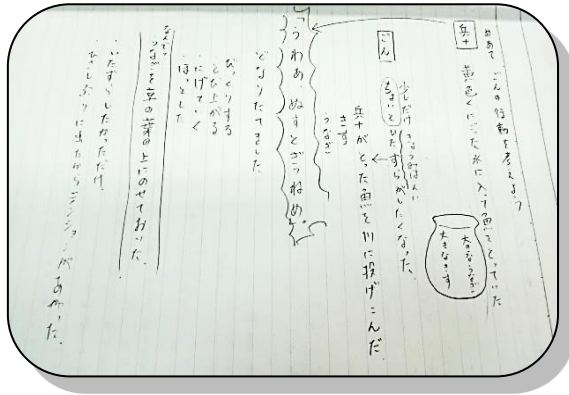 めあて ごんの行動を考えよう
兵十 黄色くにごった水に入って魚をとっていた
大きなうなぎ
大きなきす
ごん
少しだけ
ちょいといたずらがしたくなった。
兵十がとった魚を川に投げこんだ
きす
うなぎ
「うわぁ、ぬすとぎつねめ。」
どなりたてました
びっくりする
とび上がる
にげていく
ほっとした
なんで？
うなぎを草の葉の上にのせておいた。
・いたずらしたかっただけ。
・ひさしぶりに出たからテンションがあがった。